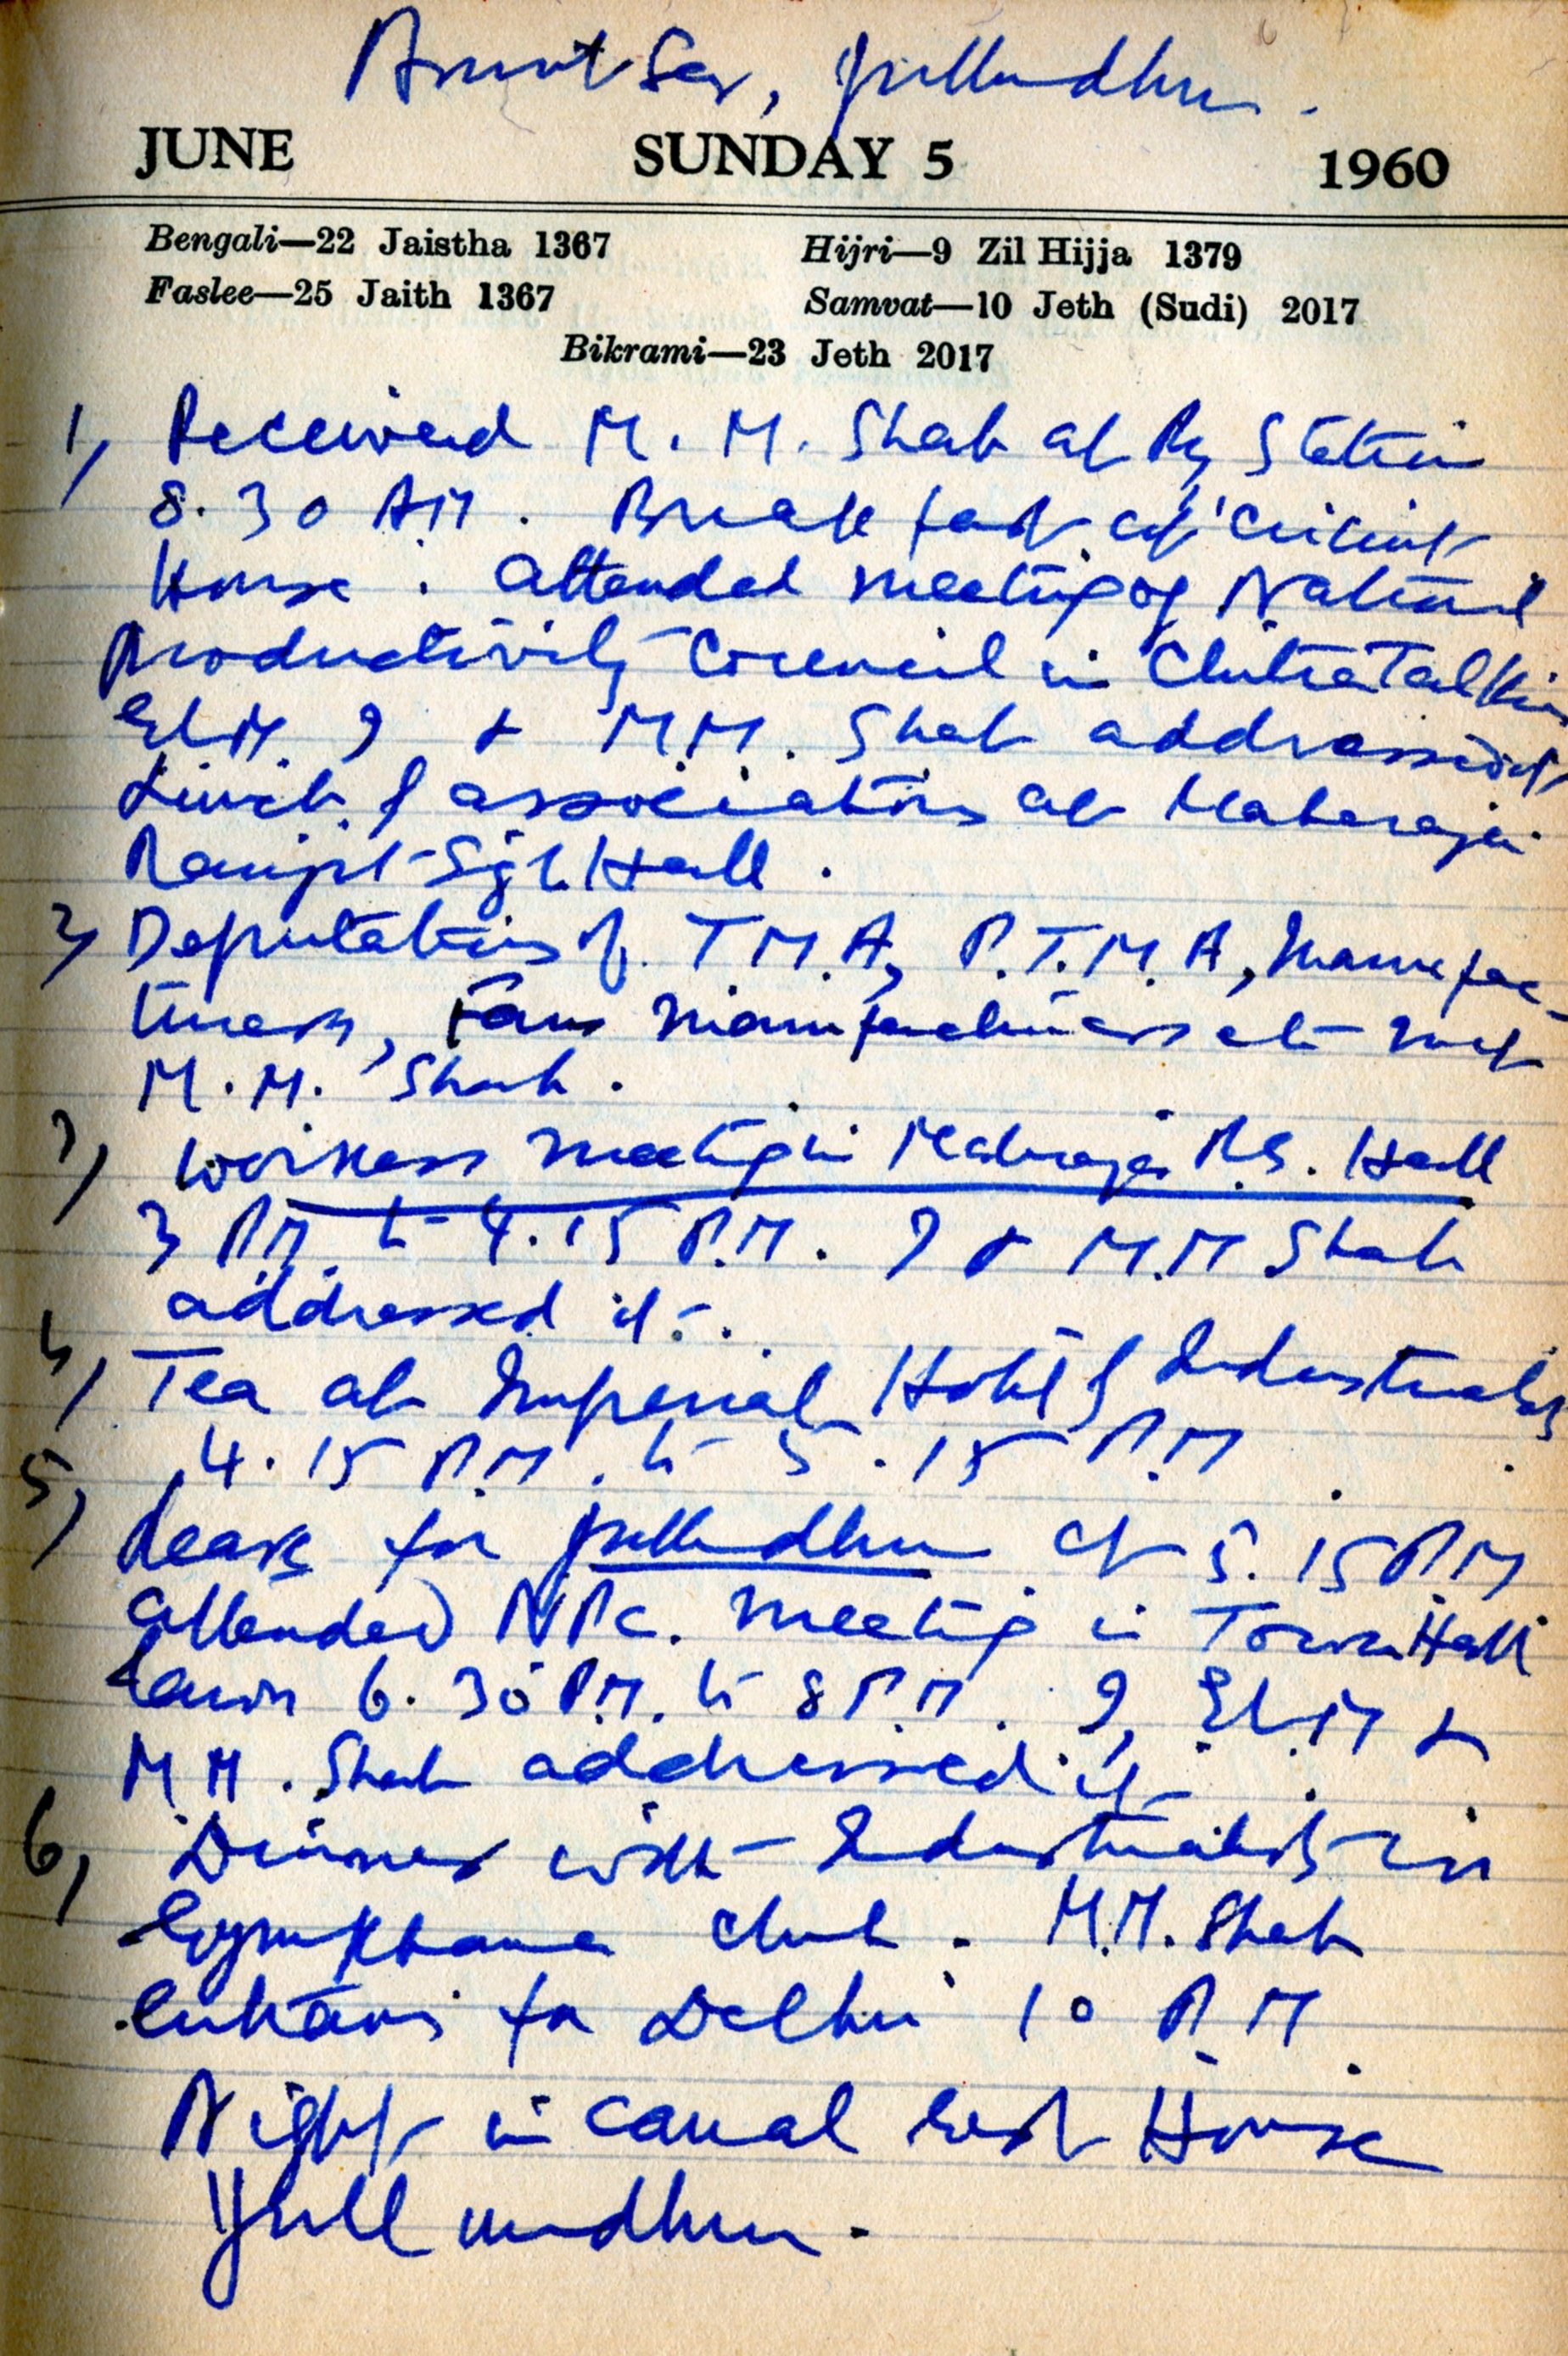 Amritsar, Jullundhur.
JUNE SUNDAY 5 1960
Bengali—22 Jaistha 1367 Hijri—9 Zil Hijja 1379
Faslee—25 Jaith 1367 Samvat—10 Jeth (Sudi) 2017
Bikrami—23 Jeth 2017
1, Received M. M. Shah at Ry Station
8.30 AM. Break fast at Circuit
House. Attended meeting of National
Productivity Council in Chitra Talkies
I & M.M. Shah addressed it,
Lunch of associations at Maharaja
Ranjit Sigh Hall.
2, Deputations of T.M.A, P.T.M.A, Manufac-
turers, Fans Manufacturers etc met
M.M. Shah.
3, Workers meeting in Maharaja R.S. Hall
3 P.M. to 4.15 P.M. I & M.M Shah
addressed it.
4, Tea at Imperial Hotel of Industrialists
4.15 P.M. to 5.15 P.M.
5, Leave for Jullundhur at 5.15 P.M
attended N.P.C. meeting in Town Hall
Lawn 6.30 P.M. to 8 P.M. I, &
M M. Shah addressed it.
6, Dinner with Industrialists in
Gymkhana Club. M.M. Shah
for Delhi 10 P.M.
Night in Canal Rest House
Jullundhur.